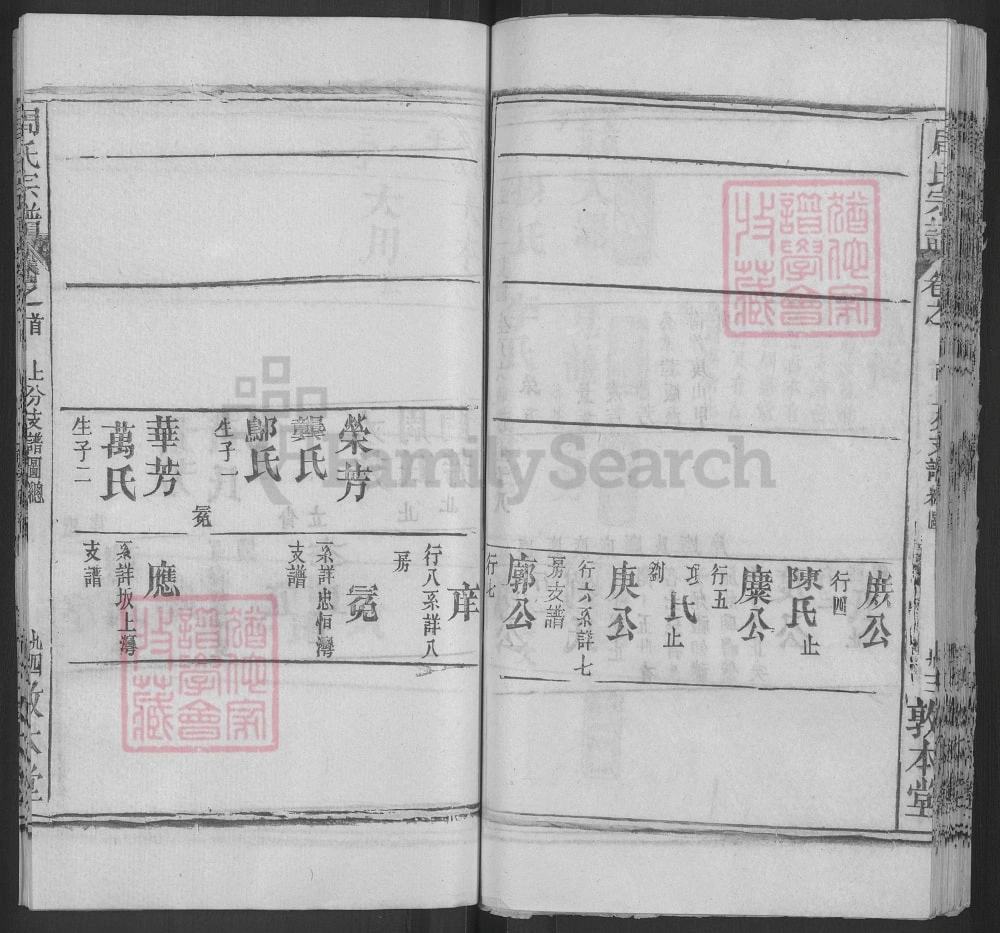 周氏宗譜
卷之
敦本堂
庶公
行四
陳氏止
麋公
行五
劉氏止
庚公
行六系詳七
房支譜
廓公
行七
庠
行八系詳八
房
榮芳
龔氏
鄢氏
生子一
冕
系詳忠恒灣
支譜
華芳
萬氏
生子二
冕
應
系詳坂上灣
支譜
周氏宗譜
卷之首
上分支譜圖總
九四
敦本堂
猶他家
譜學會
收藏
猶他家
譜學會
收藏
FamilySearch